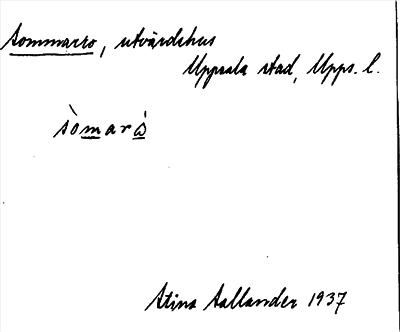 Sommarro, utvärdshus
Uppsala stad, Upps. l.
sòmaró
Stina Sallander 1937